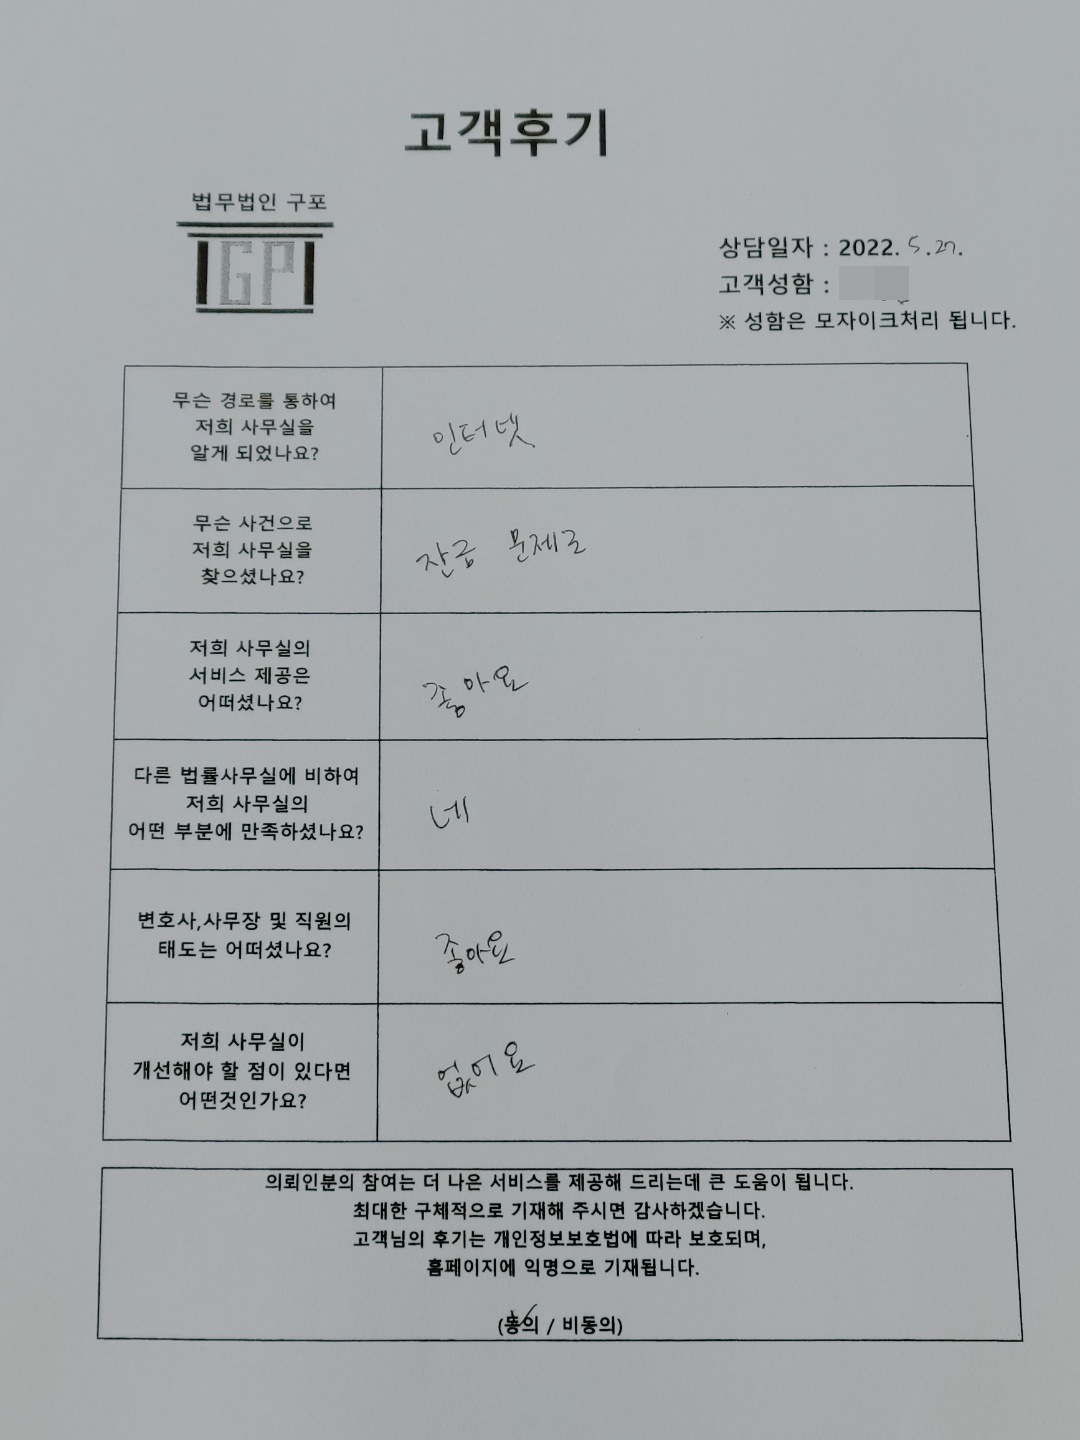 고객후기
법무법인 구포
GP
상담일자 : 2022. 5. 27.
고객성함 :
※ 성함은 모자이크처리 됩니다.
무슨 경로를 통하여
저희 사무실을
알게 되었나요?
인터넷
무슨 사건으로
저희 사무실을
찾으셨나요?
잔금 문제로
저희 사무실의
서비스 제공은
어떠셨나요?
좋아요
다른 법률사무실에 비하여
저희 사무실의
어떤 부분에 만족하셨나요?
네
변호사,사무장 및 직원의
태도는 어떠셨나요?
좋아요
저희 사무실이
개선해야 할 점이 있다면
어떤것인가요?
없어요
의뢰인분의 참여는 더 나은 서비스를 제공해 드리는데 큰 도움이 됩니다.
최대한 구체적으로 기재해 주시면 감사하겠습니다.
고객님의 후기는 개인정보보호법에 따라 보호되며,
홈페이지에 익명으로 기재됩니다.
(동의 / 비동의)